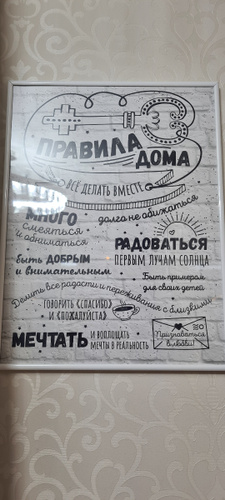 ПРАВИЛА
ДОМА
ВСЁ ДЕЛАТЬ ВМЕСТЕ
МНОГО
смеяться
и обниматься
долго не обижаться
РАДОВАТЬСЯ
ПЕРВЫМ ЛУЧАМ СОЛНЦА
быть ДОБРЫМ
и внимательным
Быть примером
для своих детей
Делить все радости и переживания с близкими
ГОВОРИТЬ «СПАСИБО»
И «ПОЖАЛУЙСТА»
МЕЧТАТЬ И ВОПЛОЩАТЬ
МЕЧТЫ В РЕАЛЬНОСТЬ
Признаваться
в любви